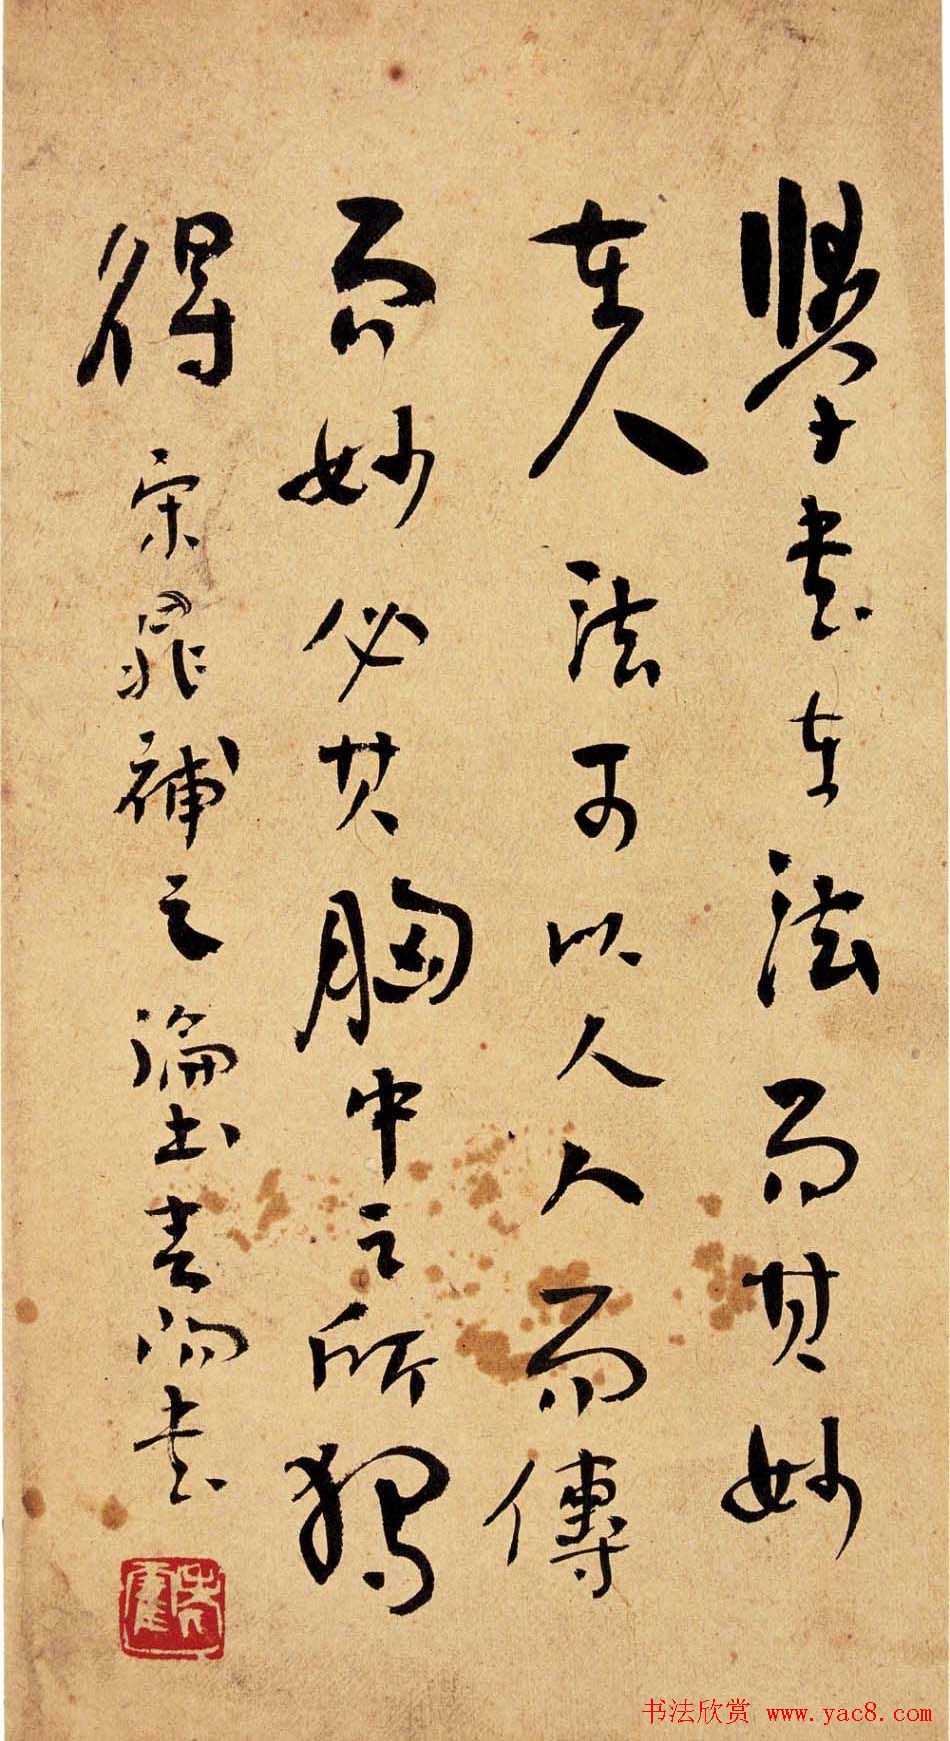 學書在法而其妙
在人法可以人人而傳
而妙必其胸中之所獨
得 宋晁補之論 書
书法欣赏 www.yac8.com